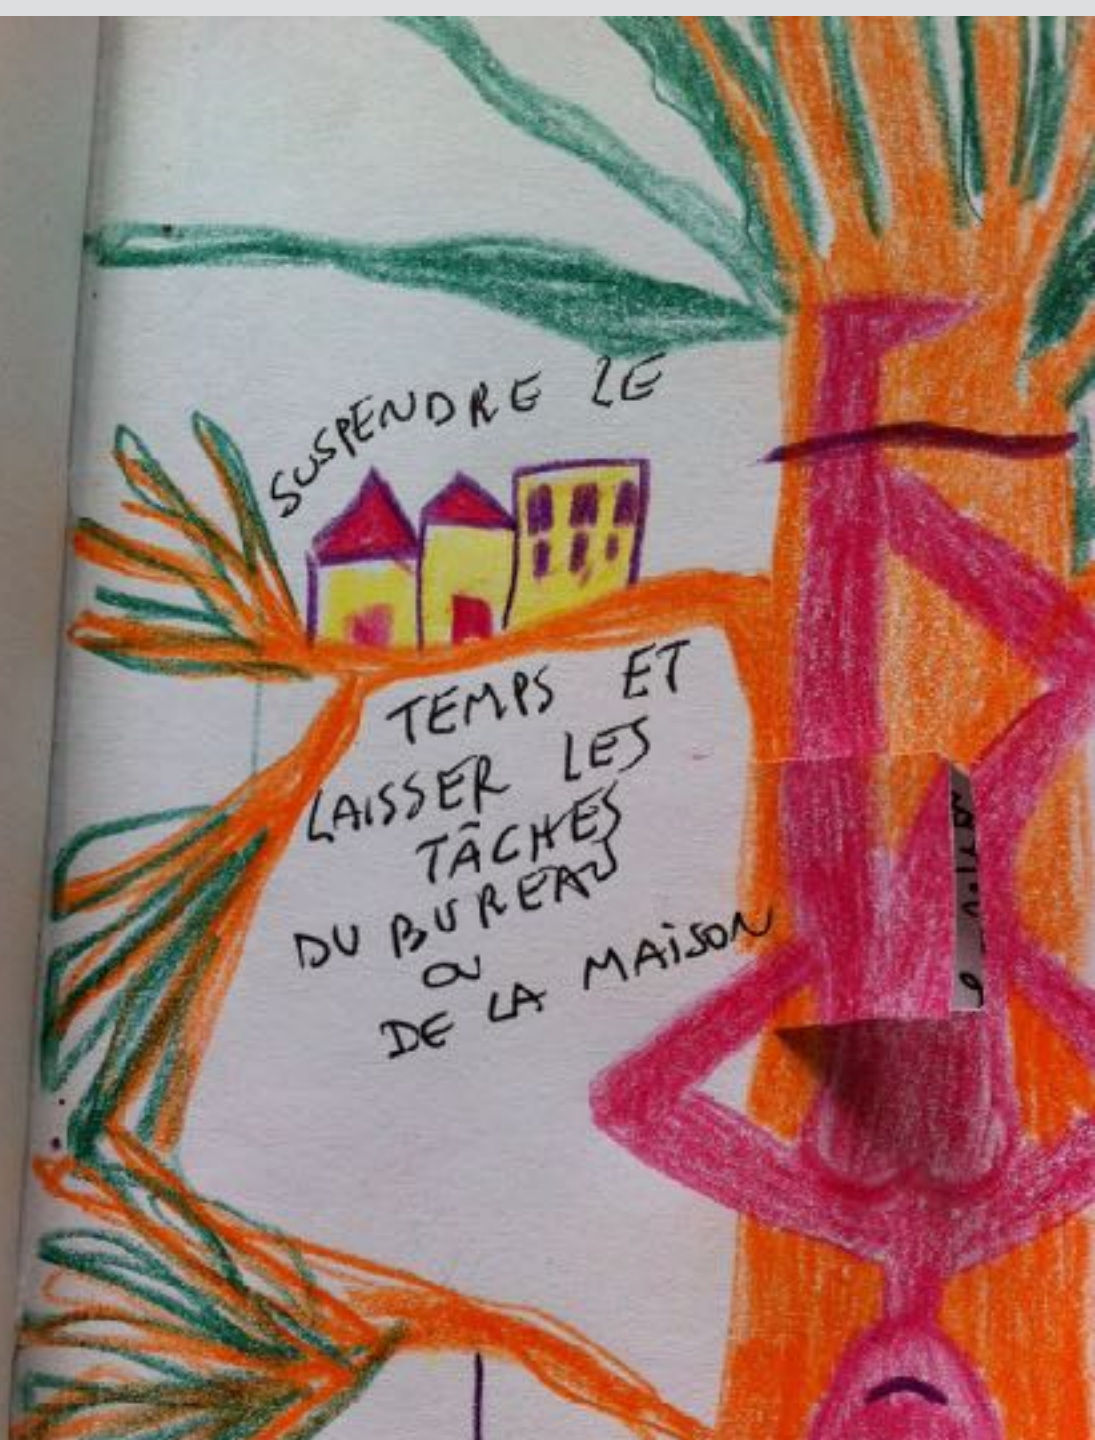 SUSPENDRE LE
TEMPS ET
LAISSER LES
TÂCHES
DU BUREAU
OU
DE LA MAISON